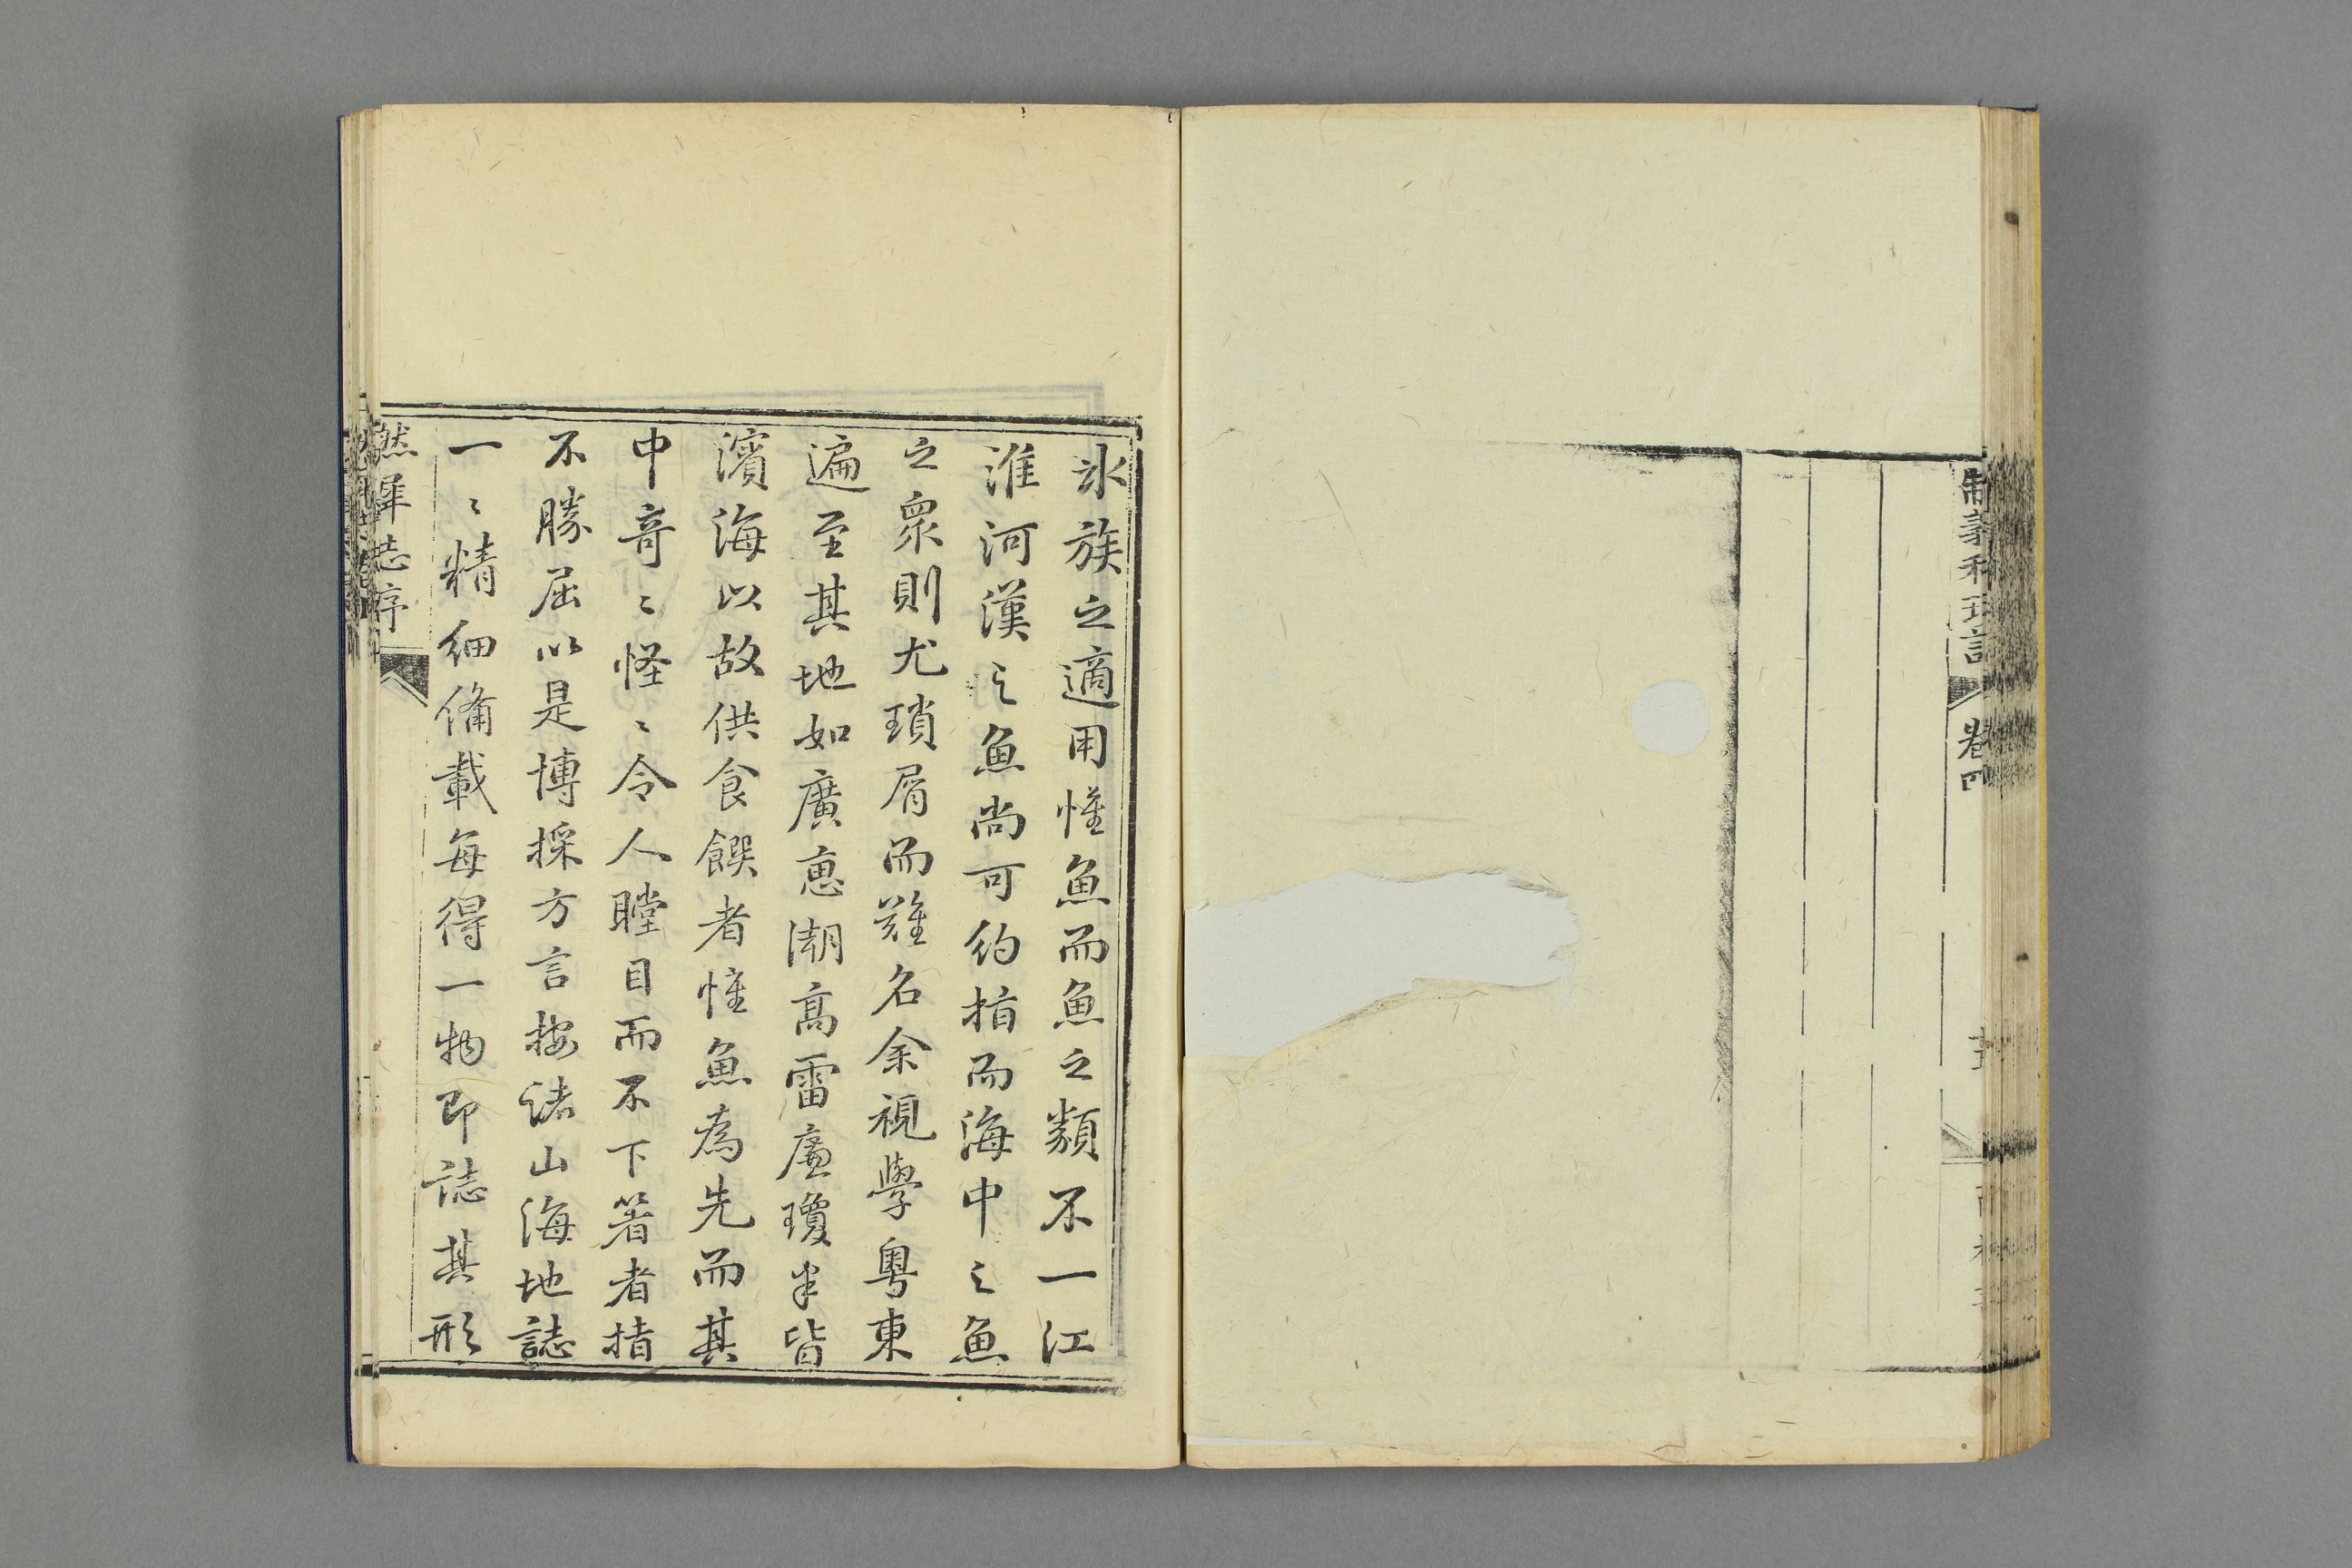 制義科瑣記
卷四
水族之適用惟魚而魚之類不一江
淮河漢之魚尚可約指而海中之魚
之衆則尤瑣屑而難名余視學粤東
遍至其地如廣惠潮高雷廉瓊半皆
濱海以故供食饌者惟魚為先而其
中奇〻怪〻令人瞠目而不下箸者指
不勝屈以是博採方言按諸山海地誌
一〻精細備載每得一物即誌其形
然犀志序